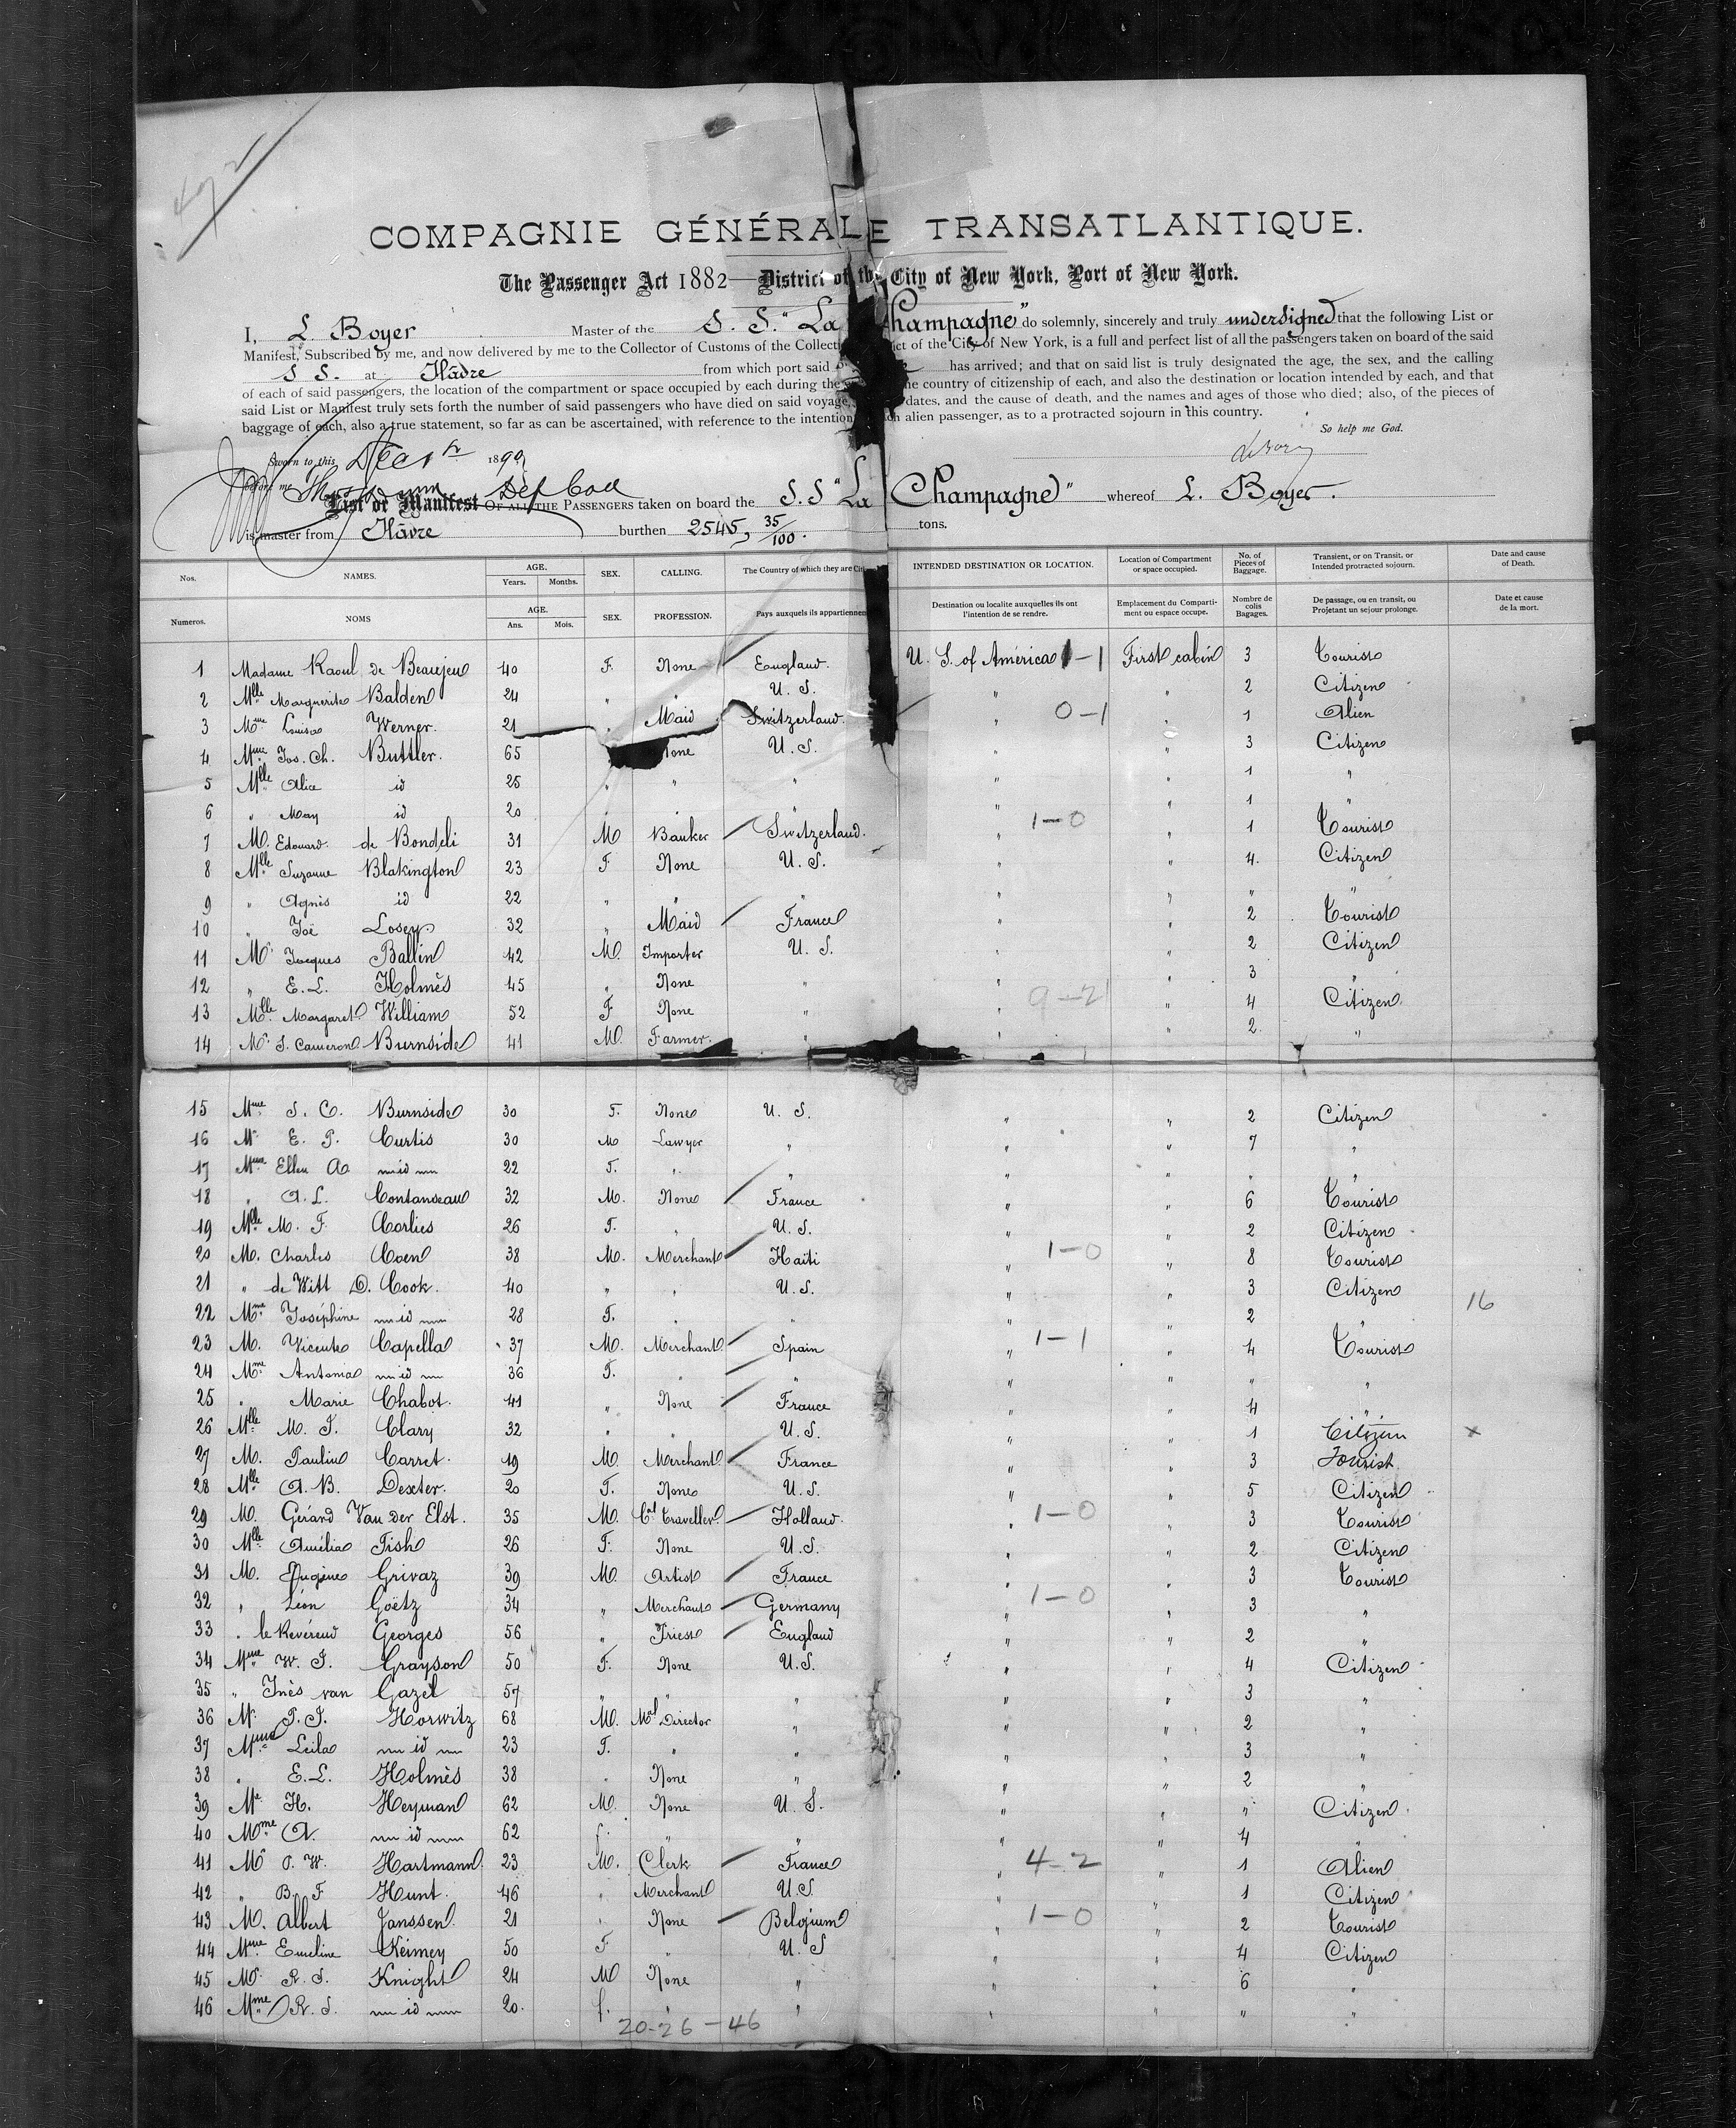 COMPAGNIE GÉNÉRALE TRANSATLANTIQUE.
The Passenger Act 1882—District of the City of New York, Port of New York.
I, L. Boyer Master of the S. S. "La Champagne" do solemnly, sincerely and truly undersigned that the following List or
Manifest, Subscribed by me, and now delivered by me to the Collector of Customs of the Collection District of the City of New York, is a full and perfect list of all the passengers taken on board of the said
S S. at Hâvre from which port said has arrived; and that on said list is truly designated the age, the sex, and the calling
of each of said passengers, the location of the compartment or space occupied by each during the the country of citizenship of each, and also the destination or location intended by each, and that
said List or Manifest truly sets forth the number of said passengers who have died on said voyage, dates, and the cause of death, and the names and ages of those who died; also, of the pieces of
baggage of each, also a true statement, so far as can be ascertained, with reference to the intention alien passenger, as to a protracted sojourn in this country.
So help me God.
Sworn to this Dec 1st 1890
before me Dep Coll
List or Manifest OF ALL THE PASSENGERS taken on board the S. S "La Champagne" whereof L. Boyer.
is master from Hâvre burthen 2545, 35/100. tons.
Nos. NAMES. AGE. Years. Months. SEX. CALLING. The Country of which they are Cit INTENDED DESTINATION OR LOCATION. Location of Compartment or space occupied. No. of Pieces of Baggage. Transient, or on Transit, or Intended protracted sojourn. Date and cause of Death.
Numeros. NOMS AGE. Ans. Mois. SEX. PROFESSION. Pays auxquels ils appartiennen Destination ou localite auxquelles ils ont l'intention de se rendre. Emplacement du Comparti-ment ou espace occupe. Nombre de colis Bagages. De passage, ou en transit, ou Projetant un sejour prolonge. Date et cause de la mort.
1 Madame Raoul de Beaujeu 40 F. None England. U. S. of América 1-1 First cabin 3 Tourist
2 Mlle Marguerite Balden 24 " " U. S. " " 2 Citizen
3 Mme Louise Werner. 21 " Maid Switzerland. " 0-1 " 1 Alien
4 Mme Jos. Ch. Buttler. 65 None U. S. " " 3 Citizen
5 Mlle Alice id 25 " " " " 1 "
6 " May id 20 " " " " " 1 "
7 M. Edouard de Bondeli 31 M Banker Switzerland. " 1-0 " 1 Tourist
8 Mlle Suzanne Blakington 23 F None U. S. " " 4. Citizen
9 " Agnès id 22 " " " " " " "
10 " Zoë Losey 32 " Maid France " " 2 Tourist
11 Mr Jacques Ballin 42 M. Importer U. S. " " 2 Citizen
12 " E. L. Holmès 45 " None " " " 3 "
13 Mlle Margaret William 52 F None " " 9-2 " 4 Citizen
14 Mr S. Cameron Burnside 41 M. Farmer. " " " 2. "
15 Mme S. C. Burnside 30 F. None U. S. " " 2 Citizen
16 Mr E. P. Curtis 30 M Lawyer " " " 7 "
17 Mme Ellen A id 22 F. " " " " " "
18 " A. L. Contanseau 32 M. None France " " 6 Tourist
19 Mlle M. F. Corlies 26 F. " U. S. " " 2 Citizen
20 M. Charles Coen 38 M. Merchant Haïti " 1-0 " 8 Tourist
21 " de Witt D. Cook. 40 " " U. S. " " 3 Citizen
22 Mme Joséphine id 28 F. " " " " 2 " 16
23 M. Vicente Capella 37 M. Merchant Spain " 1-1 " 4 Tourist
24 Mme Antonia id 36 F. " " " " " "
25 " Marie Chabot. 41 " None France " " 4 "
26 Mlle M. J. Clary 32 " " U. S. " " 1 Citizen x
27 M. Paulin Carret. 19 M. Merchant France " " 3 Tourist
28 Mlle A. B. Dexter. 20 F. None U. S. " " 5 Citizen
29 M. Gérard Van der Elst. 35 M. Cal Traveller. Holland. " 1-0 " 3 Tourist
30 Mlle Amélia Fish 26 F. None U. S. " " 2 Citizen
31 M. Eugène Grivaz 39 M. Artist France " " 3 Tourist
32 " Léon Goëtz 34 " Merchant Germany " 1-0 " 3 "
33 " le Révérend Georges 56 " Priest England " " 2 "
34 Mme W. J. Grayson 50 F. None U. S. " " 4 Citizen
35 " Inès van Gazél 57 " " " " " 3 "
36 Mr P. J. Horwitz 68 M. Mal Director " " " 2 "
37 Mme Leila id 23 F. " " " " 3 "
38 " E. L. Holmès 38 " None " " " 2 "
39 Mr H. Heyman 62 M. None U. S. " " " Citizen
40 Mme A. id 62 f. " " " " 4 "
41 Mr O. W. Hartmann. 23 M. Clerk France " 4-2 " 1 Alien
42 " B. F Hunt. 46 " Merchant U. S. " " 1 Citizen
43 M. Albert Janssen. 21 " None Belgium " 1-0 " 2 Tourist
44 Mme Emeline Keimey 50 F " U. S " " 4 Citizen
45 Mr R. S. Knight 24 M None " " " 6 "
46 Mme R. S. id 20. f. " " " " " "
20-26-46